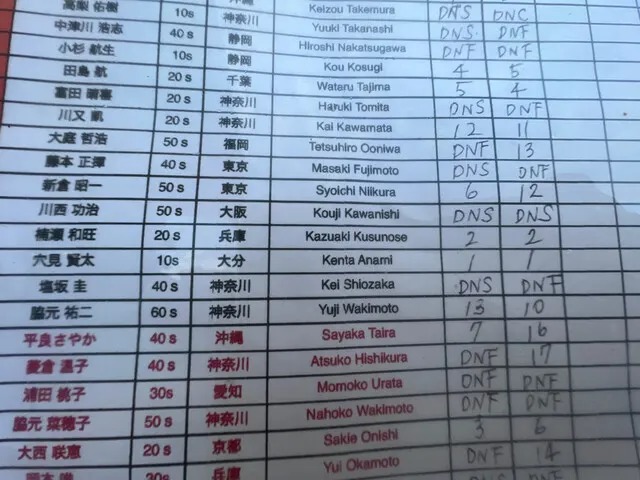 Keizou Takemura DNS DNC
高梨 佑樹 10s 神奈川 Yuuki Takanashi DNS DNF
中津川 浩志 40 s 静岡 Hiroshi Nakatsugawa DNF DNF
小杉 航生 10s 静岡 Kou Kosugi 4 5
田島 航 20 s 千葉 Wataru Tajima 5 4
富田 晴喜 20 s 神奈川 Haruki Tomita DNS DNF
川又 凱 20 s 神奈川 Kai Kawamata 12 11
大庭 哲浩 50 s 福岡 Tetsuhiro Ooniwa DNF 13
藤本 正擇 40 s 東京 Masaki Fujimoto DNS DNF
新倉 昭一 50 s 東京 Syoichi Niikura 6 12
川西 功治 50 s 大阪 Kouji Kawanishi DNS DNS
楠瀬 和旺 20 s 兵庫 Kazuaki Kusunose 2 2
穴見 賢太 10s 大分 Kenta Anami 1 1
塩坂 圭 40 s 神奈川 Kei Shiozaka DNS DNF
脇元 祐二 60 s 神奈川 Yuji Wakimoto 13 10
平良さやか 40 s 沖縄 Sayaka Taira 7 16
菱倉 温子 40 s 神奈川 Atsuko Hishikura DNF 17
浦田 桃子 30s 愛知 Momoko Urata DNF DNF
脇元 菜穂子 50 s 神奈川 Nahoko Wakimoto DNF DNF
大西 咲恵 20 s 京都 Sakie Onishi 3 6
30s 兵庫 Yui Okamoto DNF 14